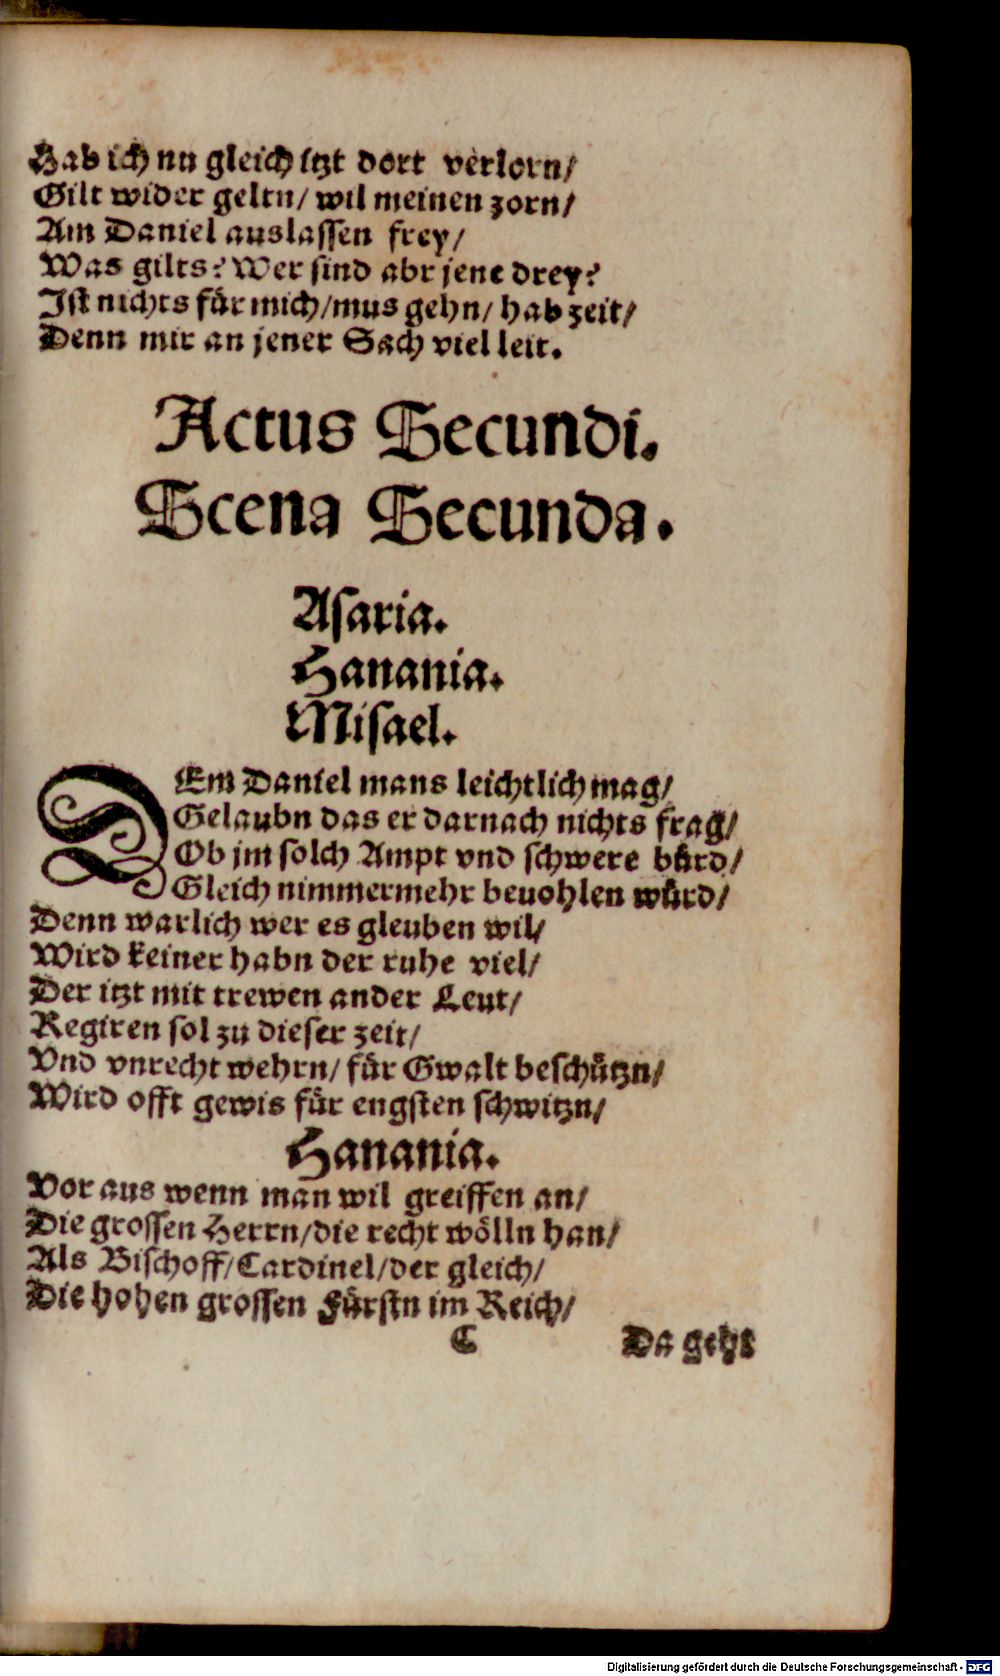 Hab ich nu gleich itzt dort verlorn/
Gilt wider geltn/ wil meinen zorn/
Am Daniel auslassen frey/
Was gilts? Wer sind abr jene drey?
Ist nichts für mich/mus gehn/ hab zeit/
Denn mir an jener Sach viel leit.
Actus Secundi.
Scena Secunda.
Asaria.
Hanania.
Misael.
DEm Daniel mans leichtlich mag/
Gelaubn das er darnach nichts frag/
Ob jm solch Ampt vnd schwere bürd/
Gleich nimmermehr beuohlen würd/
Denn warlich wer es gleuben wil/
Wird keiner habn der ruhe viel/
Der itzt mit trewen ander Leut/
Regiren sol zu dieser zeit/
Vnd vnrecht wehrn/ für Gwalt beschützn/
Wird offt gewis für engsten schwitzn/
Hanania.
Vor aus wenn man wil greiffen an/
Die grossen Herrn/die recht wölln han/
Als Bischoff/Cardinel/der gleich/
Die hohen grossen Fürstn im Reich/
C Da geht
Digitalisierung gefördert durch die Deutsche Forschungsgemeinschaft - DFG